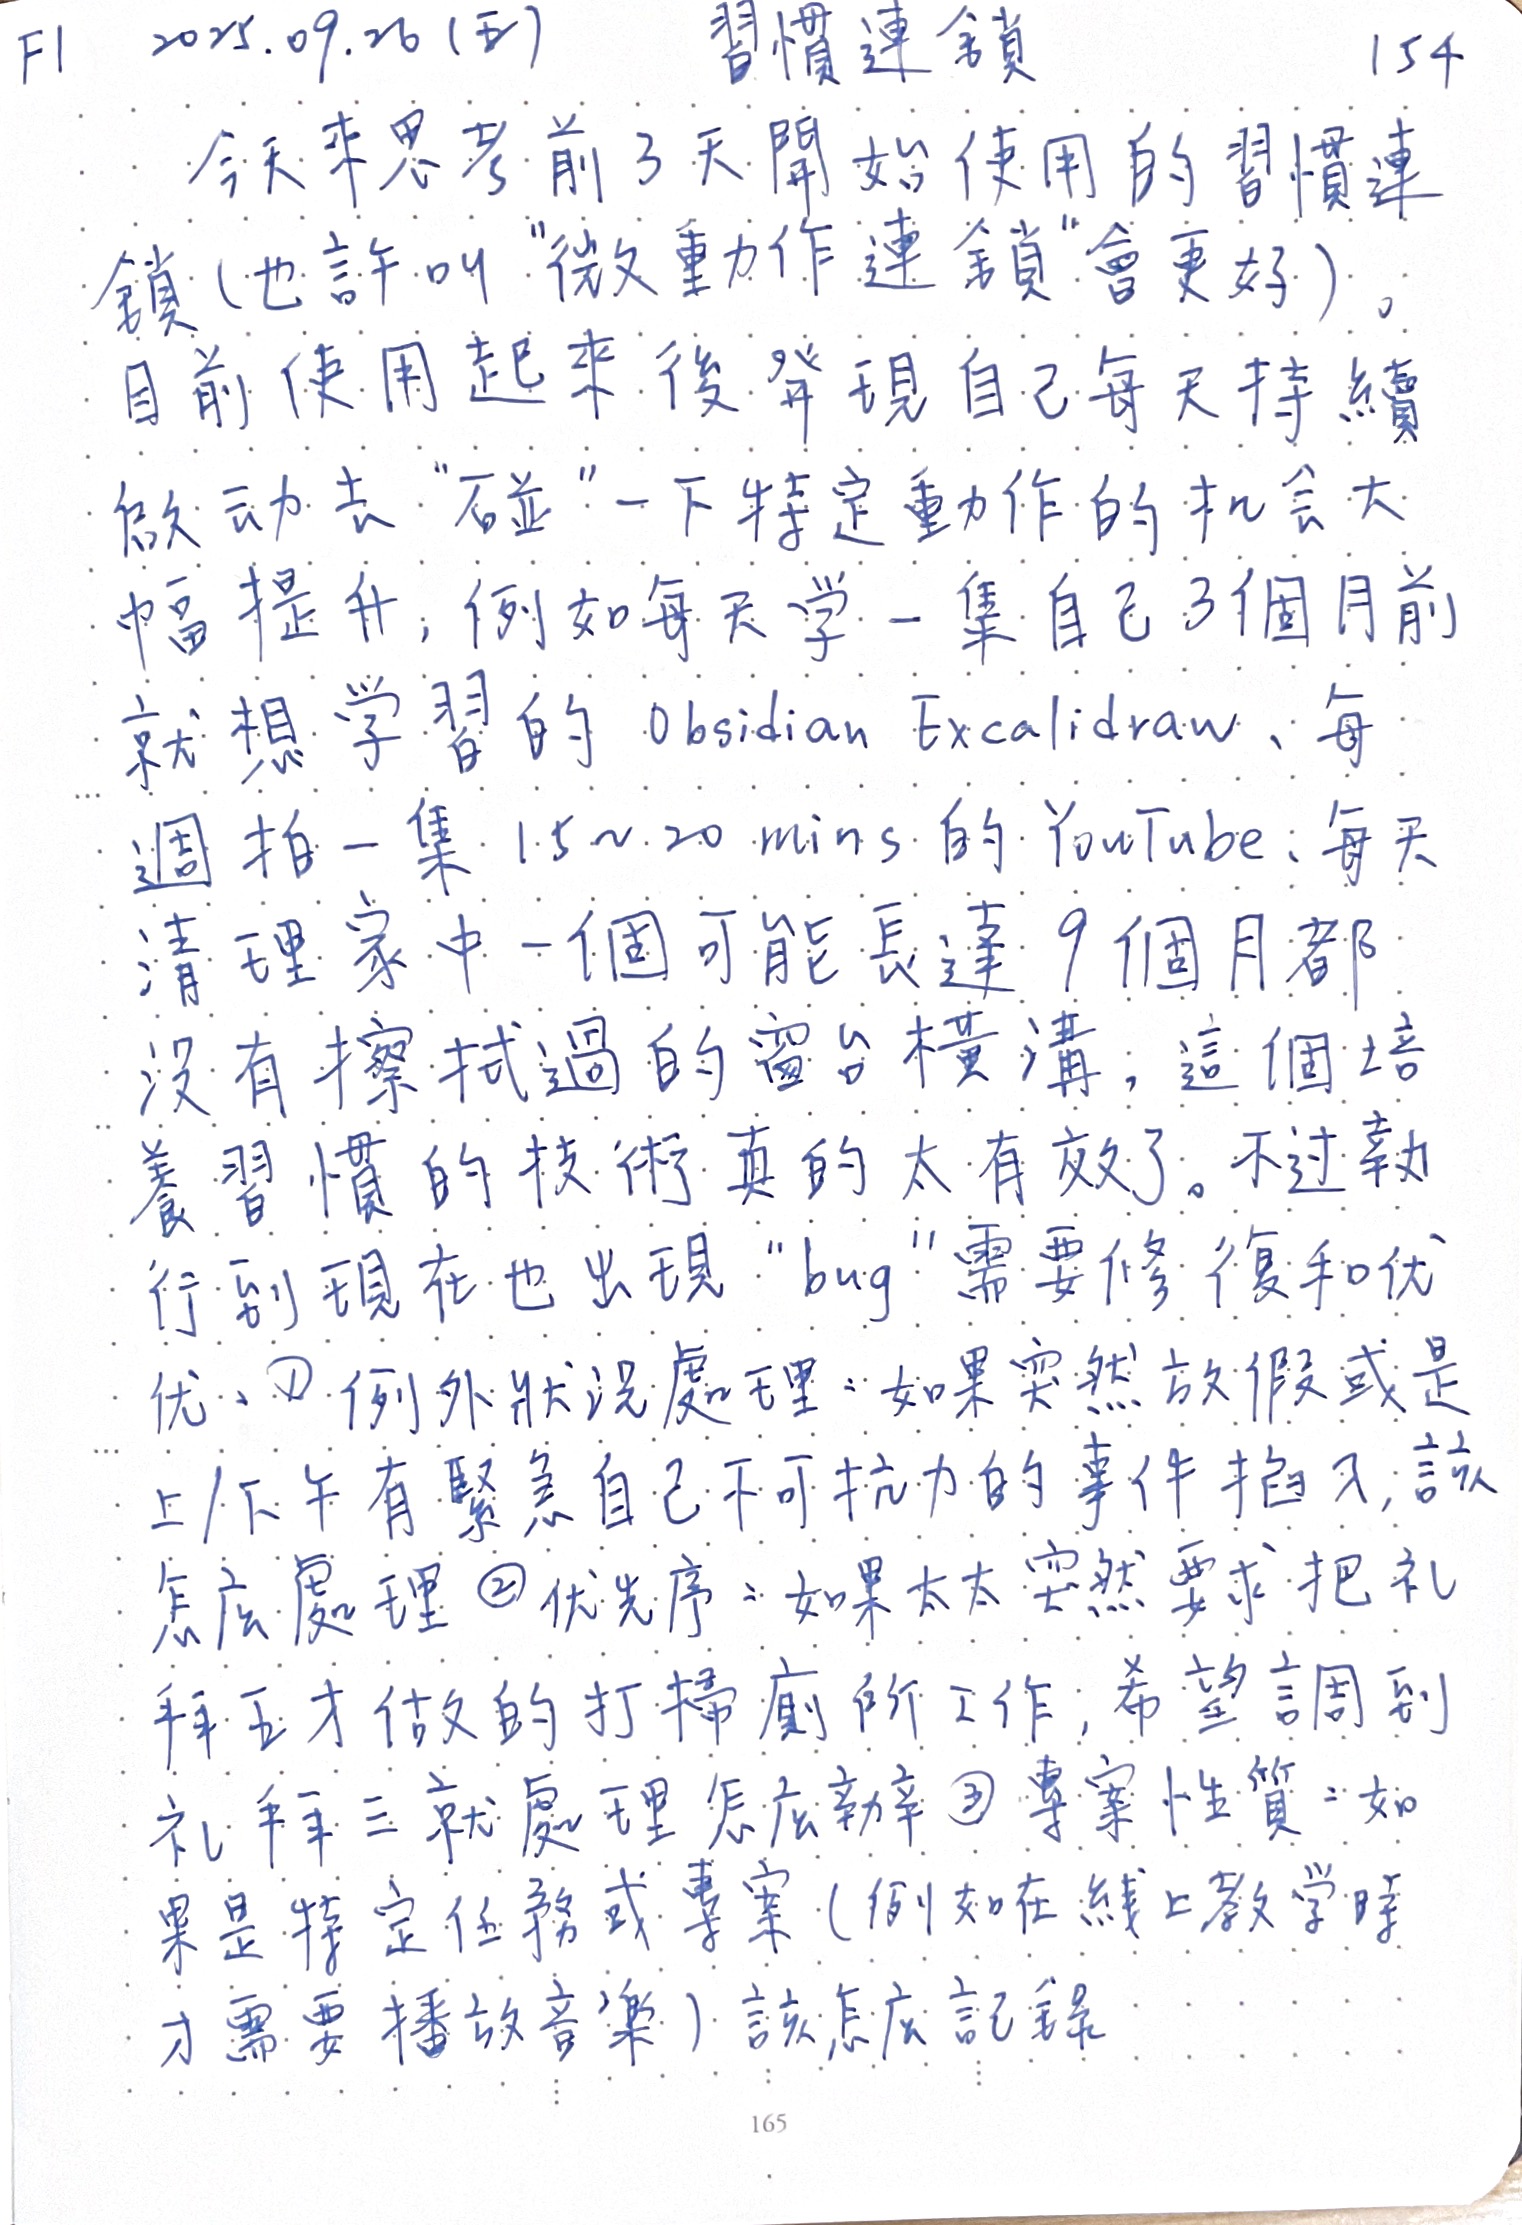 F1 2025.09.26 (五) 習慣連鎖 154
今天來思考前3天開始使用的習慣連
鎖(也許叫"微動作連鎖"會更好)。
目前使用起來後發現自己每天持續
啟动去"碰"一下特定動作的机会大
幅提升,例如每天学一集自己3個月前
就想学習的 Obsidian Excalidraw、每
週拍一集 15~20 mins 的 YouTube、每天
清理家中一個可能長達9個月都
没有擦拭過的窗台橫溝,這個培
養習慣的技術真的太有效了。不过執
行到現在也出現"bug"需要修復和优
优、①例外狀況處理:如果突然放假或是
上/下午有緊急自己不可抗力的事件插入,該
怎么處理 ②优先序:如果太太突然要求把礼
拜五才做的打掃廁所工作,希望調到
礼拜三就處理怎么辦 ③專案性質:如
果是特定任務或專案(例如在綫上教学時
才需要播放音樂)該怎么記錄
165